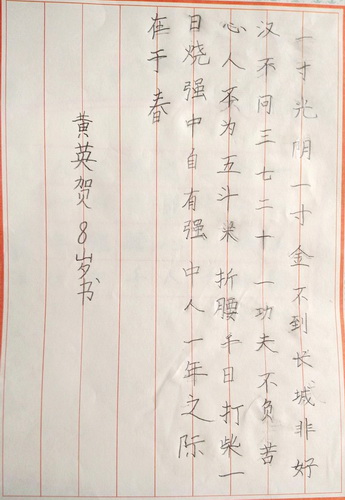 一寸光阴一寸金不到长城非好
汉不问三七二十一功夫不负苦
心人不为五斗米折腰羊日打柴一
日烧强中自有强中人一年之际
在于春
黄英贺8岁书